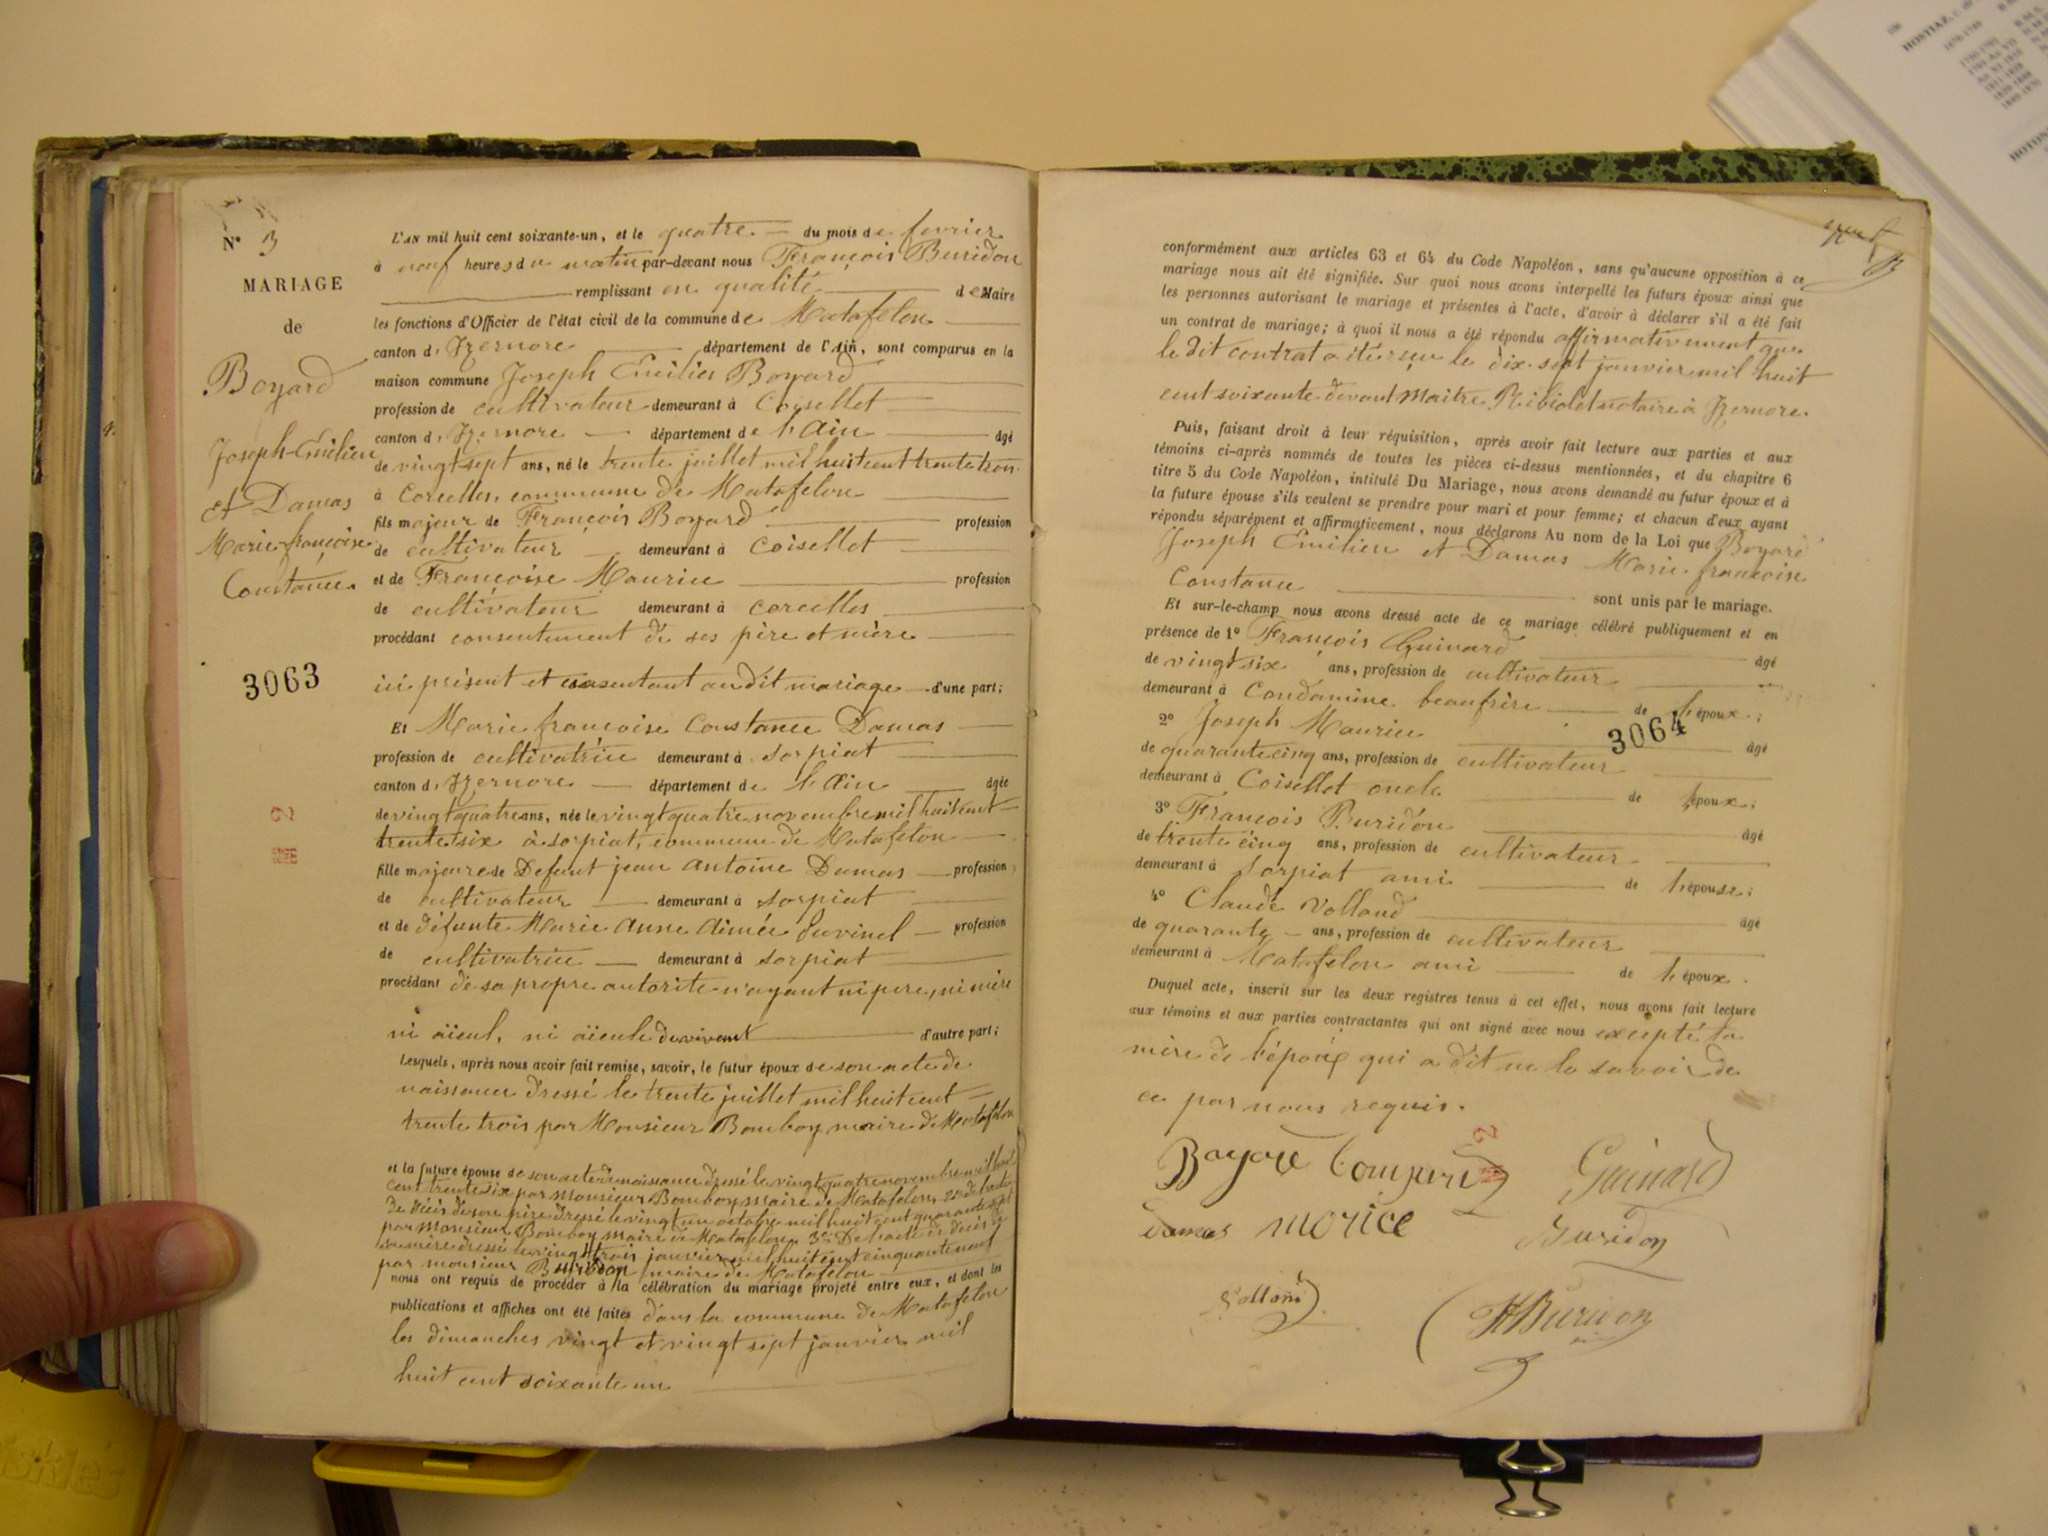 N° 3
MARIAGE
de
Boyard
Joseph-Emilien
et Damas
Marie-françoise
Constance.
3063
L'AN mil huit cent soixante-un, et le quatre du mois de fevrier
à neuf heures du matin par-devant nous François Buridon
remplissant en qualité de Maire
les fonctions d'Officier de l'état civil de la commune de Matafelon
canton d'Izernore département de l'Ain, sont comparus en la
maison commune Joseph Emilien Boyard
profession de cultivateur demeurant à Coisellet
canton d'Izernore département de l'Ain âgé
de vingt sept ans, né le trente juillet mil huit cent trente trois
à Corcelles, commune de Matafelon
fils majeur de François Boyard profession
de cultivateur demeurant à Coisellet
et de Françoise Maurice profession
de cultivateur demeurant à corcelles
procédant consentement de ses père et mère
ici présent et consentant audit mariage d'une part;
Et Marie françoise Constance Damas
profession de cultivatrice demeurant à sorpiat
canton d'Izernore département de l'Ain âgée
de vingt quatre ans, née le vingt quatre novembre mil huit cent
trente six à sorpiat, commune de Matafelon
fille majeure de Defunt jean antoine Damas profession
de cultivateur demeurant à sorpiat
et de défunte Marie Anne Aimée profession
de cultivatrice demeurant à sorpiat
procédant de sa propre autorite n'ayant ni pere, ni mère
ni aïeul, ni aïeule d'autre part;
Lesquels, après nous avoir fait remise, savoir, le futur époux de son acte de
naissance dressé le trente juillet mil huit cent
trente trois par Monsieur Bomboy maire de Matafelon
et la future épouse de son acte de naissance dressé le vingt quatre novembre mil huit
cent trente six par Monsieur Bomboy maire de Matafelon, 2° de l'acte
de décès de son père dressé le vingt un octobre mil huit cent quarante
par Monsieur Bomboy maire de Matafelon 3° De l'acte de décès de
sa mère dressé le vingt trois janvier mil huit cent cinquante neuf
par monsieur Buridon maire de Matafelon
nous ont requis de procéder à la célébration du mariage projeté entre eux, et dont les
publications et affiches ont été faites dans la commune de Matafelon
les dimanches vingt et vingt sept janvier mil
huit cent soixante un
conformément aux articles 63 et 64 du Code Napoléon, sans qu'aucune opposition à ce
mariage nous ait été signifiée. Sur quoi nous avons interpellé les futurs époux ainsi que
les personnes autorisant le mariage et présentes à l'acte, d'avoir à déclarer s'il a été fait
un contrat de mariage; à quoi il nous a été répondu affirmativement que
le dit contrat a été reçu le dix-sept janvier mil huit
cent soixante devant Maitre Ribiolet notaire à Izernore.
Puis, faisant droit à leur réquisition, après avoir fait lecture aux parties et aux
témoins ci-après nommés de toutes les pièces ci-dessus mentionnées, et du chapitre 6
titre 5 du Code Napoléon, intitulé Du Mariage, nous avons demandé au futur époux et à
la future épouse s'ils veulent se prendre pour mari et pour femme; et chacun d'eux ayant
répondu séparément et affirmaticement, nous déclarons Au nom de la Loi que Boyard
Joseph Emilien et Damas Marie-françoise
Constance sont unis par le mariage.
Et sur-le-champ nous avons dressé acte de ce mariage célébré publiquement et en
présence de 1° François Guinard âgé
de vingt six ans, profession de cultivateur
demeurant à Condamine beaufrère de l'époux;
2° Joseph Maurice âgé
3064
de quarante cinq ans, profession de cultivateur
demeurant à Coisellet oncle de l'époux;
3° François Buridon âgé
de trente cinq ans, profession de cultivateur
demeurant à sorpiat ami de l'épouse;
4° Claude Volland âgé
de quarante ans, profession de cultivateur
demeurant à Matafelon ami de l'époux.
Duquel acte, inscrit sur les deux registres tenus à cet effet, nous avons fait lecture
aux témoins et aux parties contractantes qui ont signé avec nous excepté la
mère de l'époux qui a dit ne le savoir de
ce par nous requis.
Guinard
Damas morice
Buridon
Volland
Buridon
HOSTIAZ